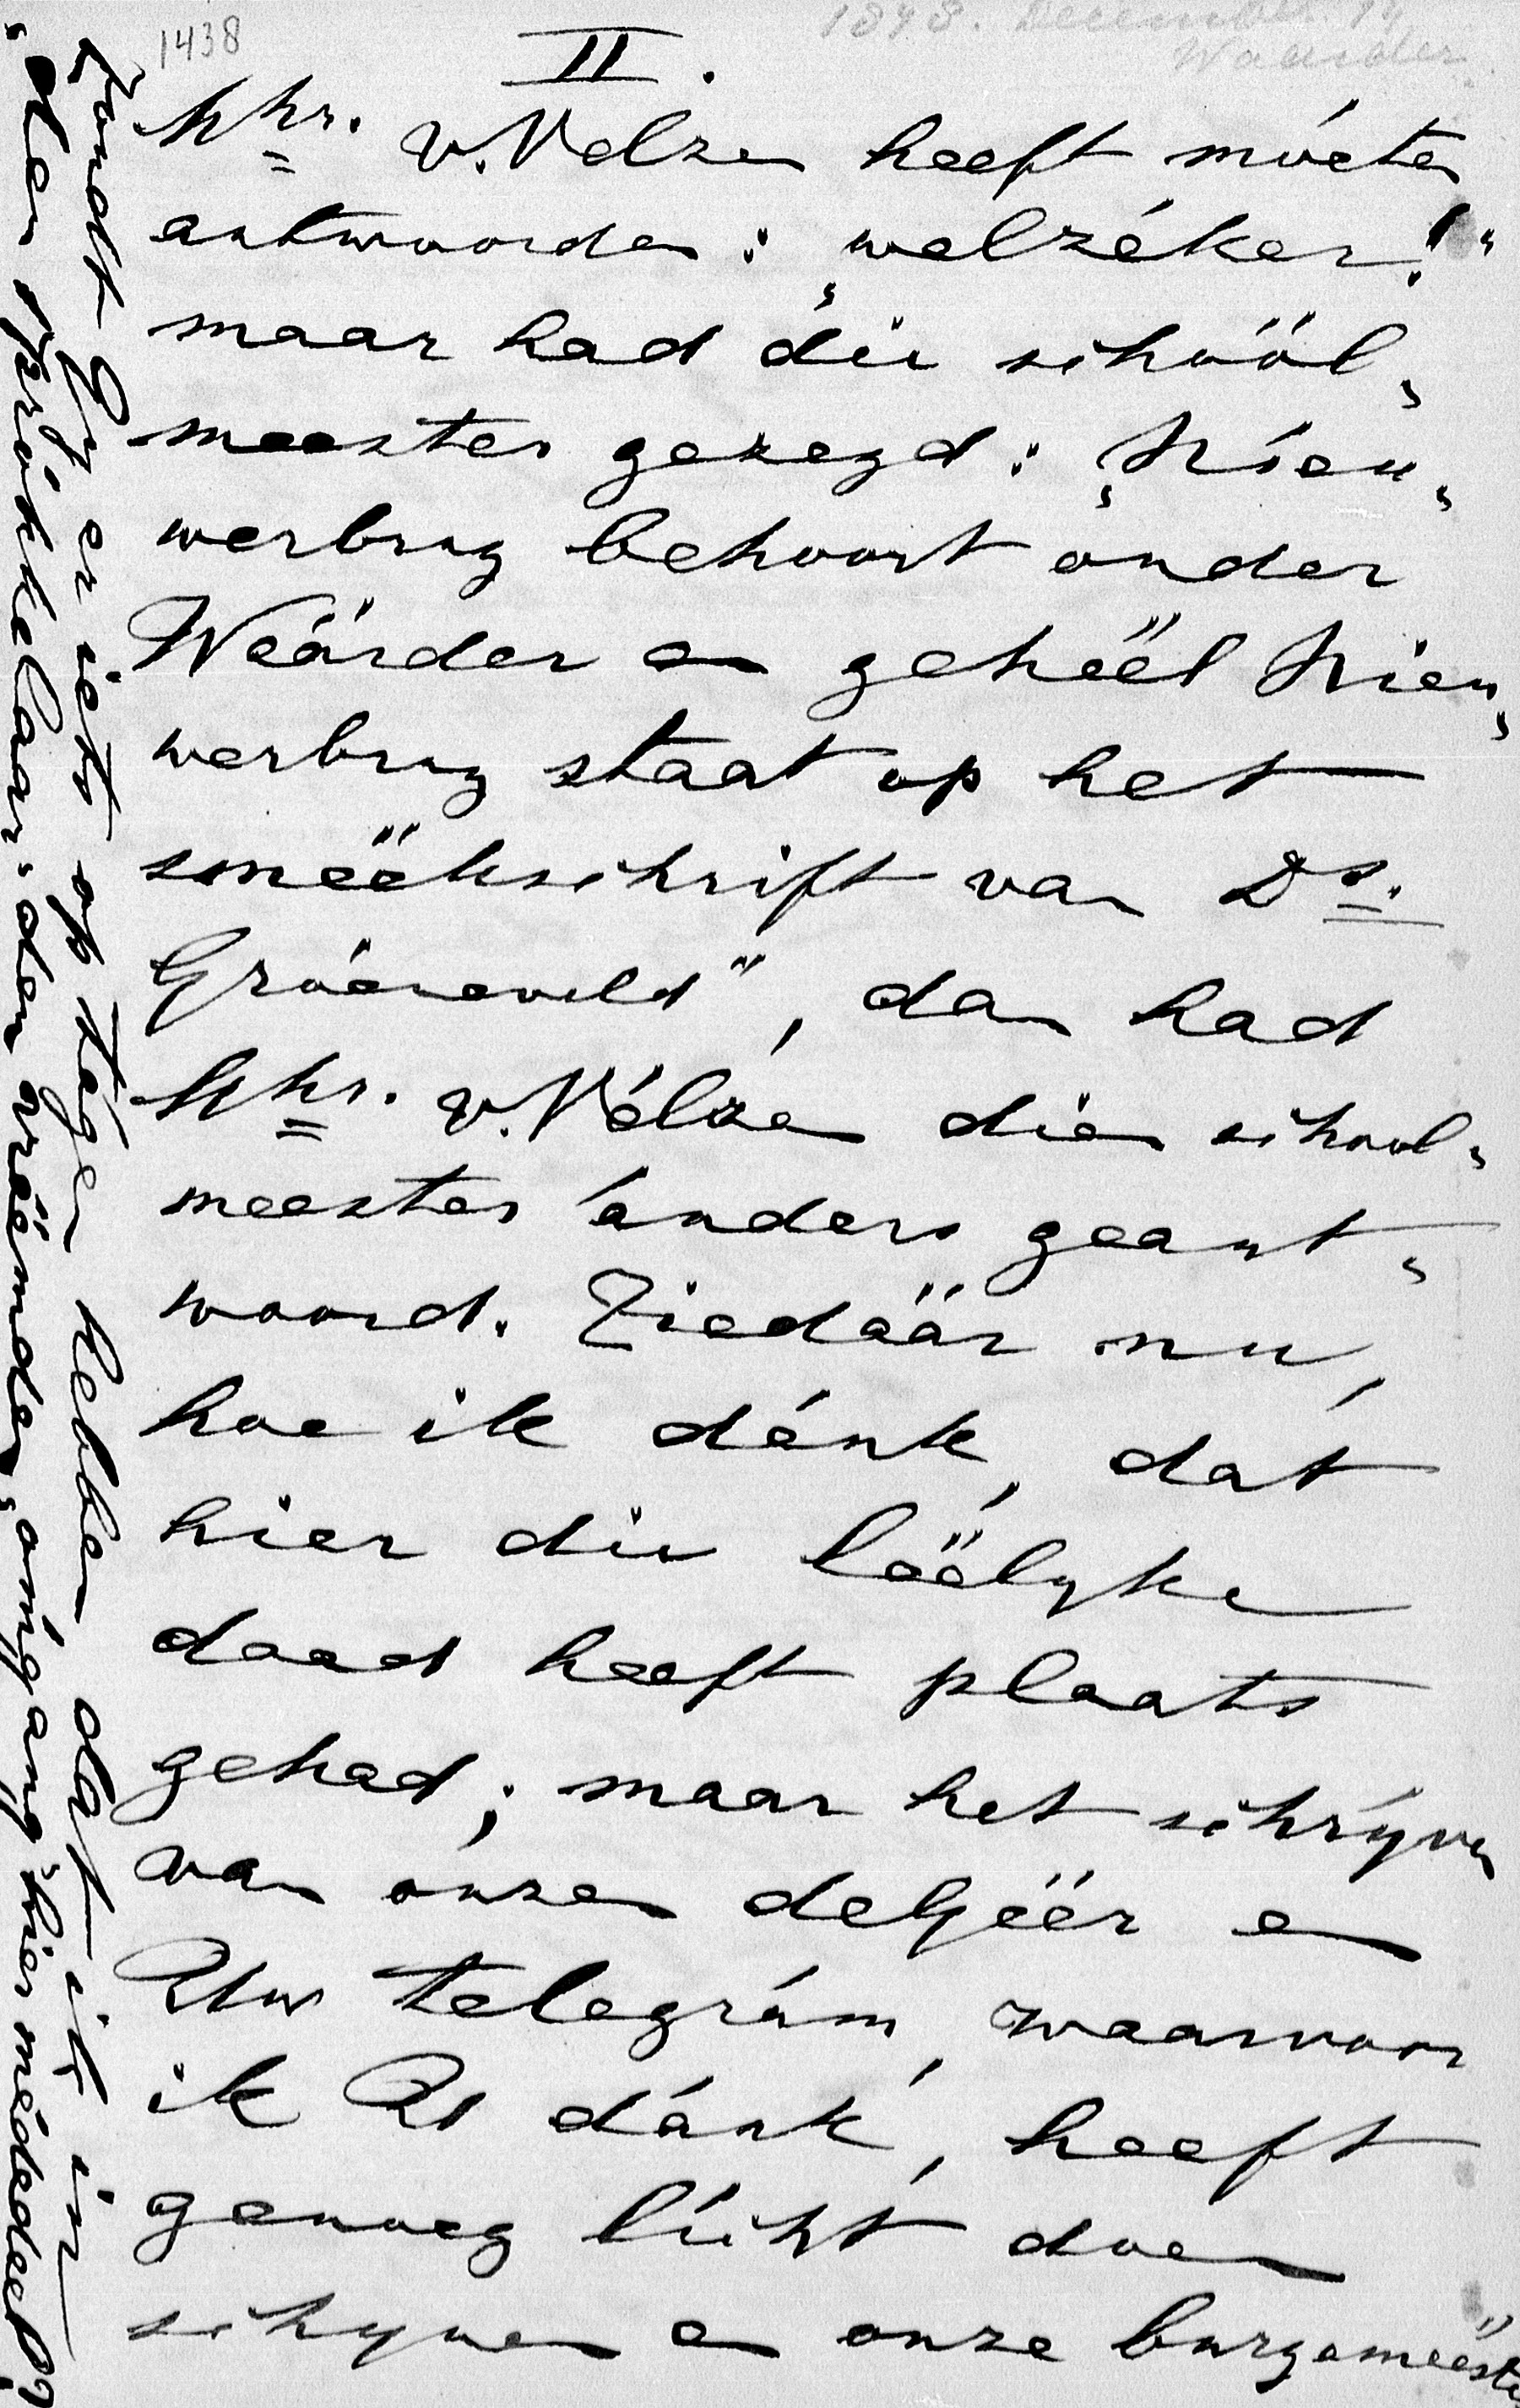 1438
1898. December 14
Waarder
II.
Mhr. v. Velzen heeft móeten
antwoorden: „welzéker!"
maar had die schööl„
meester gezegd: „Nieu„
werbrug behoort ónder
Waárder en gehëël Nieu„
werbrug staat op het
smëëkschrift van Ds.
Gróeneveld", dan had
Mhr. v. Vélzen dien school„
meester ánders geant„
woord. Ziedäär nu,
hoe ik dénk, dat
hier die lëëlyke
daad heeft plaats
gehad; maar het schrýven
van ónzen de Gëër en
Uw telegrám, waarvoor
ik U dánk, heeft
genoeg lícht doen
schynen en onze burgemëëster
Zoudt Gy er iets op tégen hebben dat ik in
„den sprókkelaar„ den vrëëmden „omgang" hier médedeel?